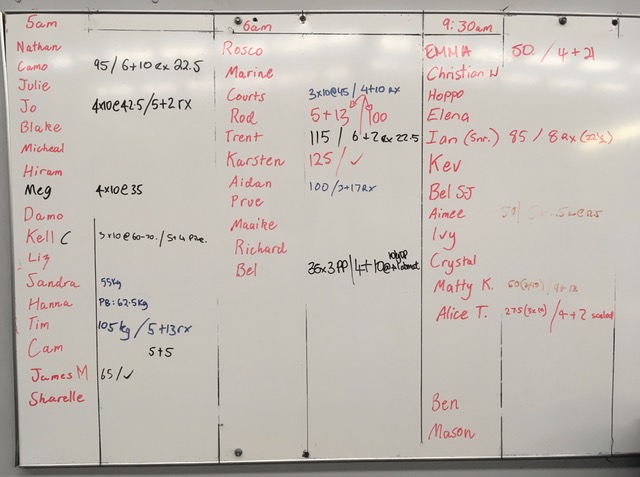 5am
Nathan
Camo 95/6+10 Rx 22.5
Julie
Jo 4x10@42.5/5+2 rx
Blake
Micheal
Hiram
Meg 4x10@35
Damo
Kell C 3x10@60-70. / 5+4
Liz
Sandra 55kg
Hanna PB: 62.5kg
Tim 105kg / 5+13rx
Cam 5+5
James M 65/✓
Sharelle
6am
Rosco
Marine
Courts 3x10@45/4+10 rx
Rod 5+13 100
Trent 115 / 6+2 Rx 22.5
Karsten 125/✓
Aidan 100/3+17Rx
Prue
Maaike
Richard
Bel 35x3 PP/4+10
9:30am
EMMA 50 / 4+21
Christian W
Hoppo
Elena
Ian (Snr.) 85 / 8 Rx
Kev
Bel SJ
Aimee
Ivy
Crystal
Matty K.
Alice T. 27.5(3x10)/4+2 scaled
Ben
Mason